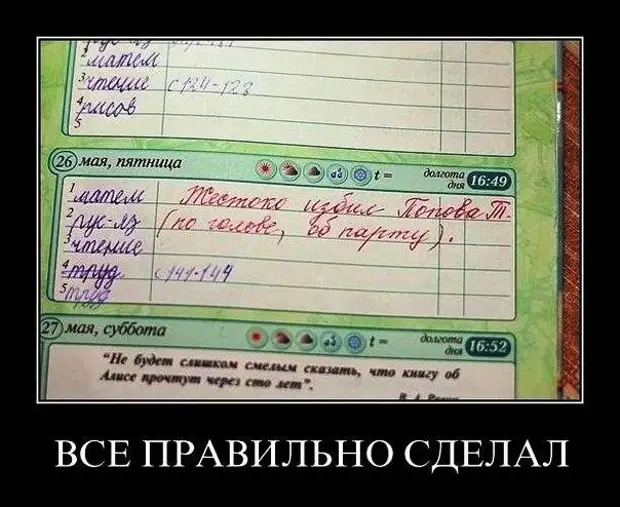 матем
3 чтение с 124-128
4 рисов
5
26 мая, пятница t = долгота дня 16:49
1 матем Жестоко избил Попова Т.
2 рус-яз (по голове, об парту).
3 чтение
4 труд с 141-144
5 труд
27 мая, суббота t = долгота дня 16:52
"Не будет слишком смелым сказать, что книгу об
Алисе прочтут через сто лет".
ВСЕ ПРАВИЛЬНО СДЕЛАЛ